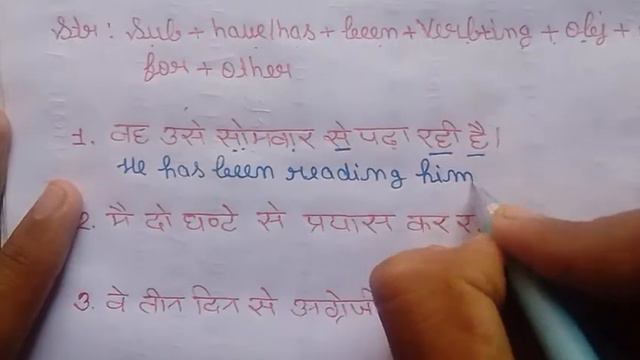 Str: Sub + have/has + been + Verb+ing + Obj +
for + other
1. वह उसे सोमवार से पढ़ा रही है।
He has been reading him
2. मै दो घण्टे से प्रयास कर
3. वे तीन दिन से अंग्रेजी